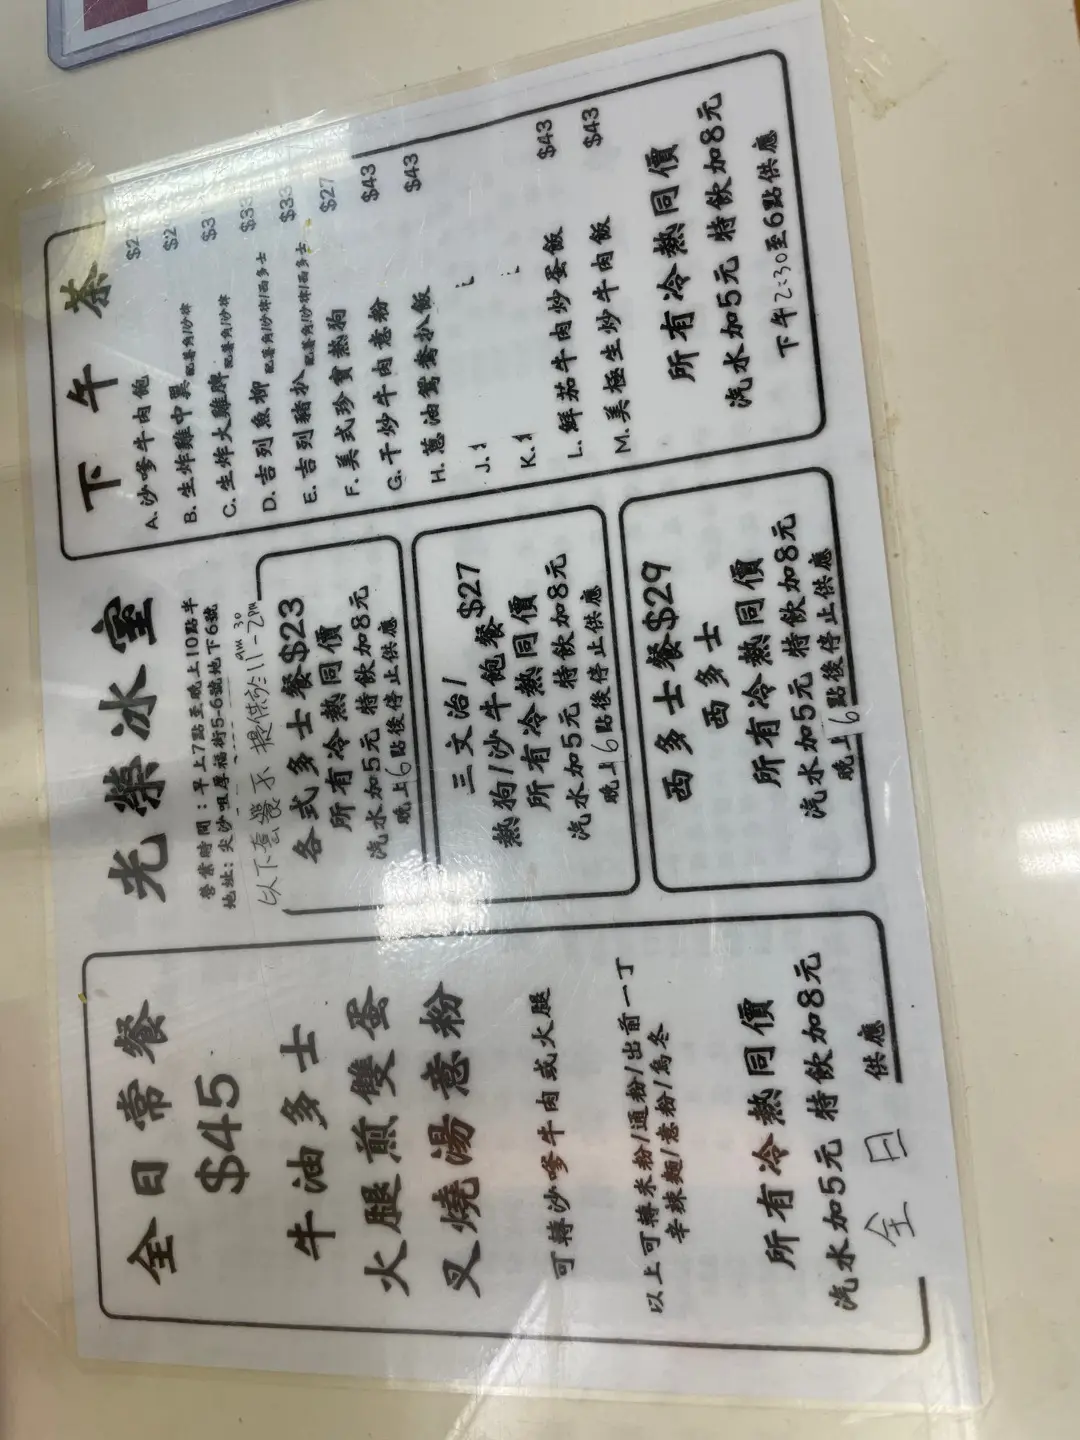 全日常餐
$45
牛油多士
火腿煎雙蛋
叉燒湯意粉
可轉沙嗲牛肉或火腿
以上可轉米粉/通粉/出前一丁
辛辣麵/意粉/烏冬
所有冷熱同價
汽水加5元 特飲加8元
全日 供應
光榮冰室
營業時間：早上7點至晚上10點半
地址：尖沙咀厚福街5-6號地下6號
以下套餐不提供於11am30-2pm
各式多士餐$23
所有冷熱同價
汽水加5元 特飲加8元
晚上6點後停止供應
三文治/
熱狗/沙牛飽餐$27
所有冷熱同價
汽水加5元 特飲加8元
晚上6點後停止供應
西多士餐$29
西多士
所有冷熱同價
汽水加5元 特飲加8元
晚上6點後停止供應
下午茶
A.沙嗲牛肉飽 $2
B.生炸雞中翼配薯角/沙律 $2
C.生炸大雞脾配薯角/沙律 $3
D.吉列魚柳配薯角/沙律/西多士 $33
E.吉列豬扒配薯角/沙律/西多士 $33
F.美式珍寶熱狗 $27
G.干炒牛肉意粉 $43
H.蔥油鴛鴦扒飯 $43
J.
K.
L.鮮茄牛肉炒蛋飯 $43
M.美極生炒牛肉飯 $43
所有冷熱同價
汽水加5元 特飲加8元
下午2:30至6點供應